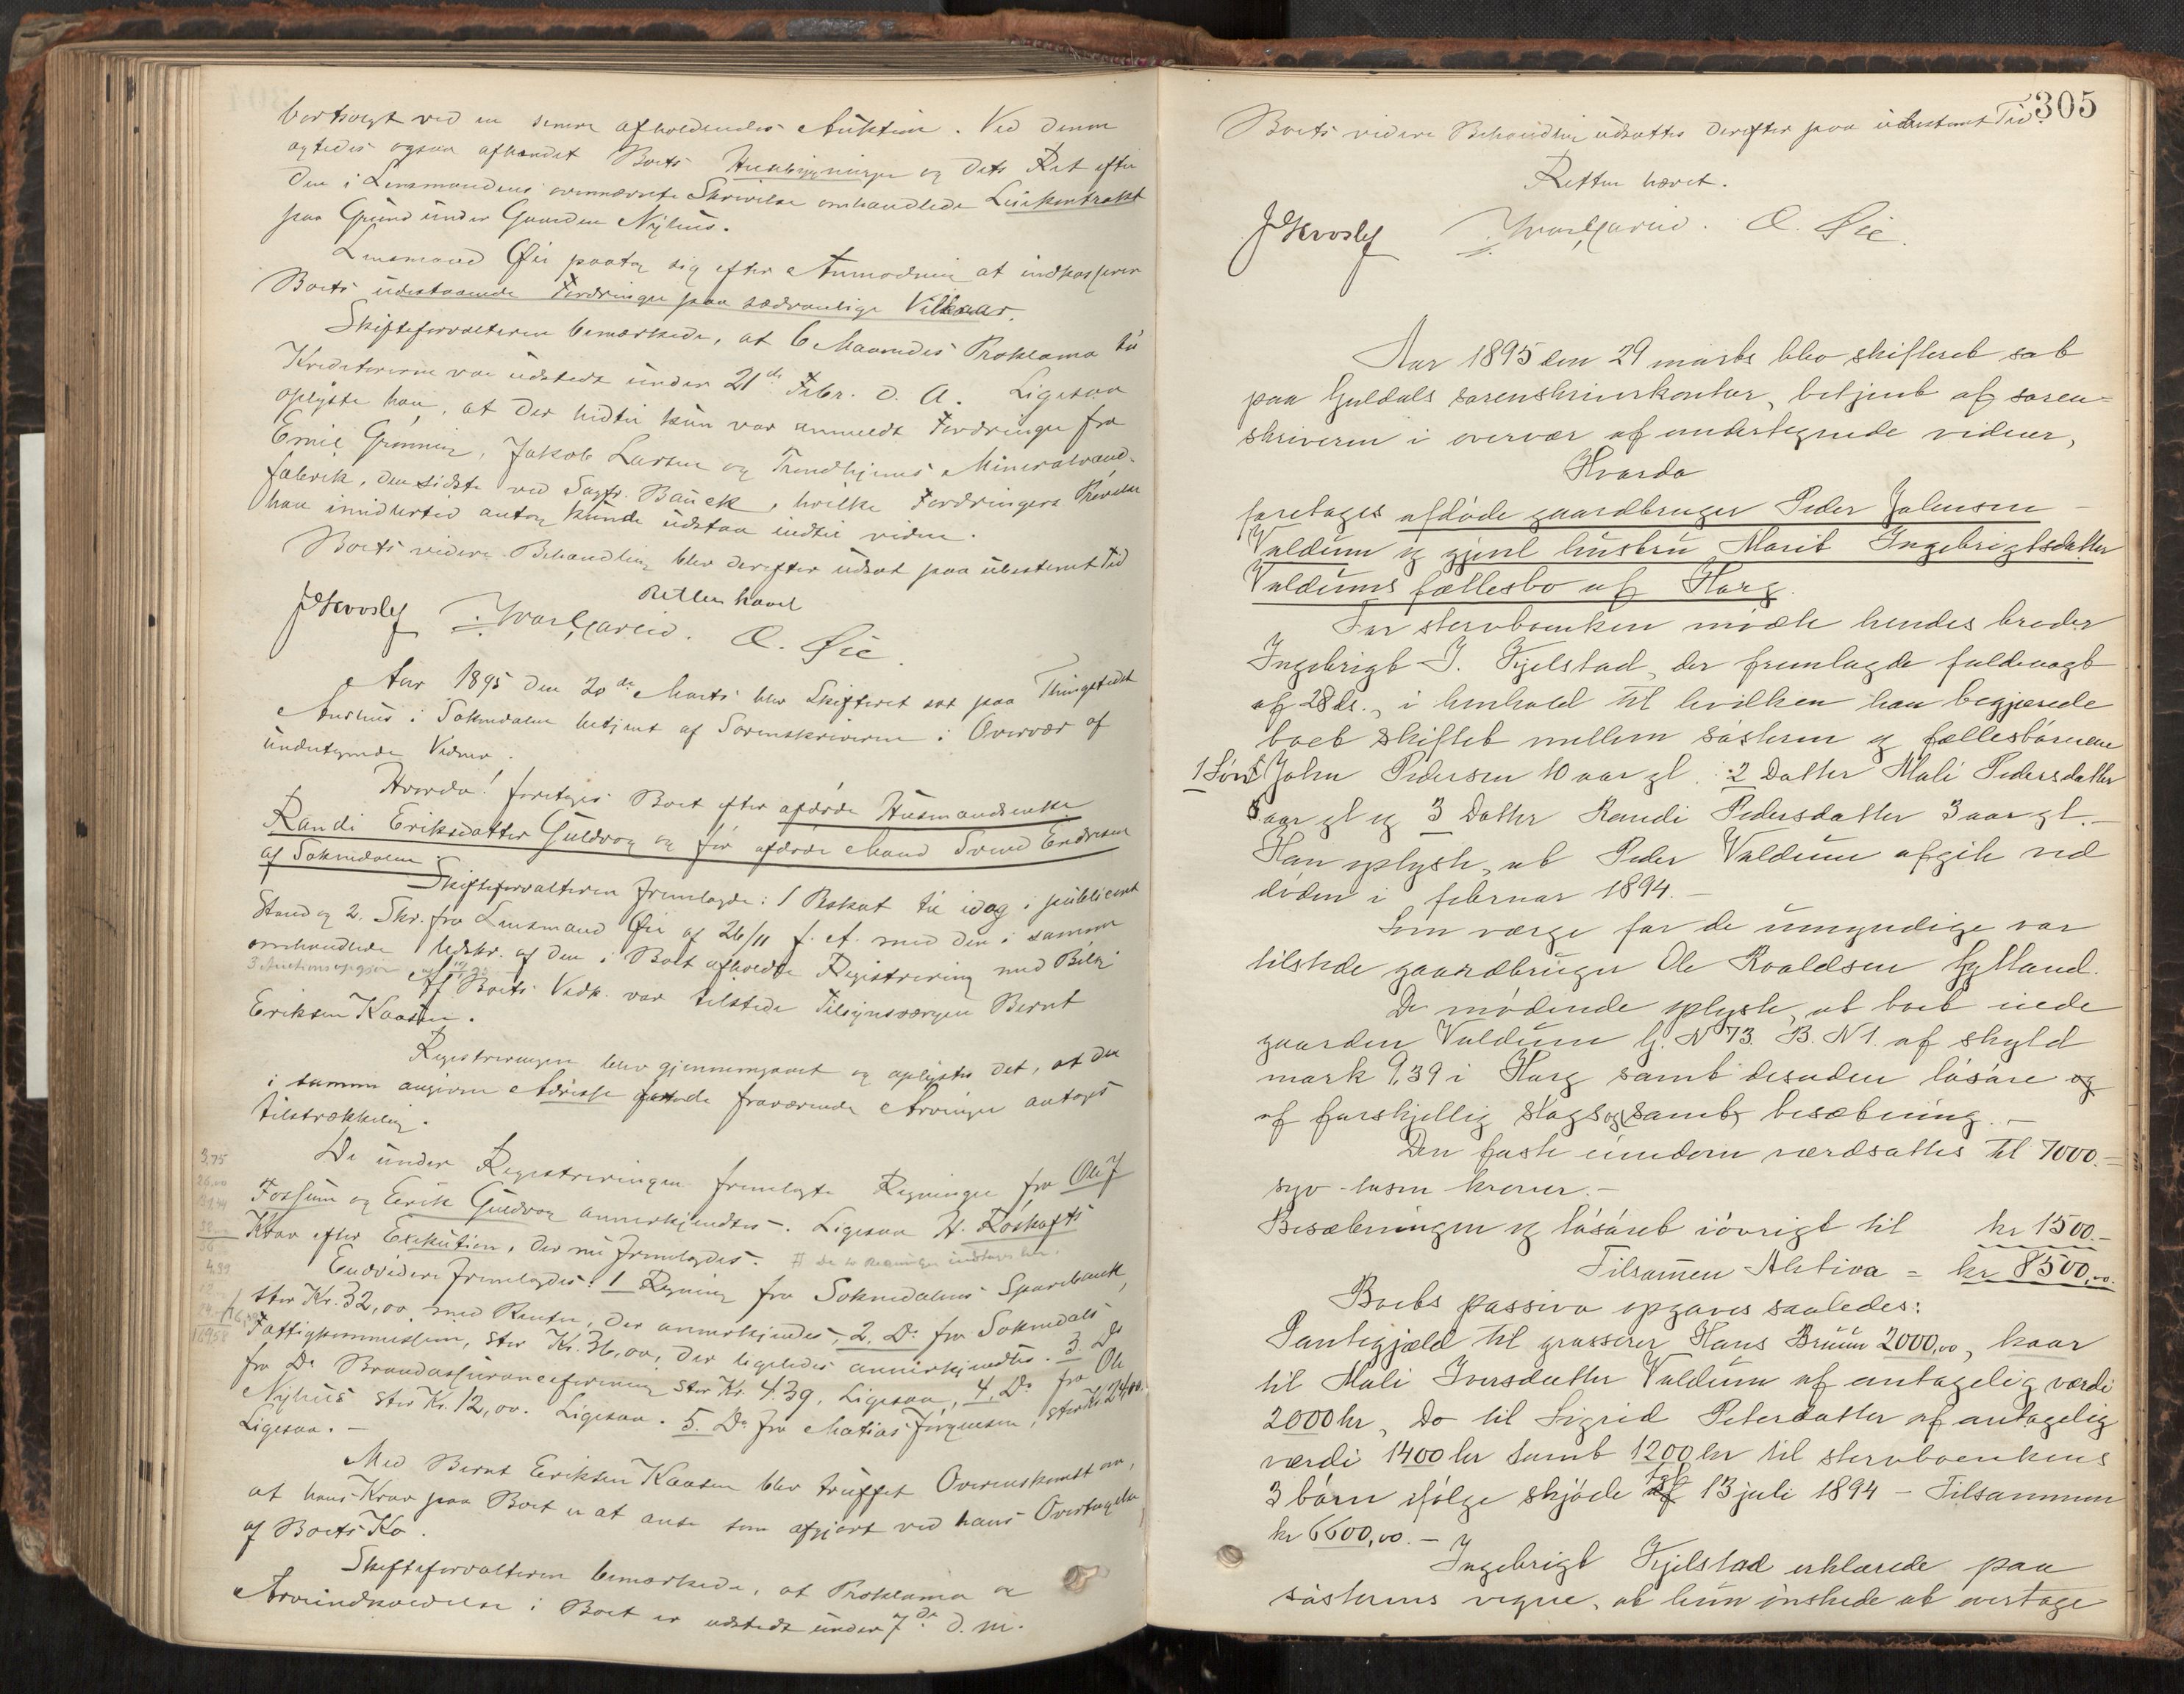 bortsolgt ved en senere afholdendes Auktion. Ved denne
agtedes ogsaa afhændet Boets Husbygninger og dets Ret efter
den i Lensmandens ovennævnte Skrivelse omhandlede Leiekontrakt
paa Grund under Gaarden Nyhus.
Lensmand Øie paatog sig efter Anmodning at indkassere
Boets udestaaende Fordringer paa sædvanlige Vilkaar.
Skifteforvalteren bemærkede, at 6 Maaneders Proklama til
Kreditorerne var udstedt under 21de Febr. d. A. Ligesaa
oplyste han, at der hidtil kun var anmeldt Fordringer fra
Emil Grønning, Jakob Larsen og Trondhjems Mineralvand-
fabrik, den sidste ved Sagfr. Bauck, hvilke Fordringers Prøvelse
han imidlertid antog kunde udstaa indtil videre.
Boets videre Behandling blev derefter udsat paa ubestemt Tid
Retten hævet
J Skrosly Ivar Gareid. O. Øie.
Aar 1895 den 20de Marts blev Skifteret sat paa Thingstedet
Aashus i Soknedalen betjent af Sorenskriveren i Overvær af
undertegnede Vidner.
Hvorda! foretoges Boet efter afdøde Husmandsenke
Randi Eriksdatter Guldvog og før afdøde Mand Svend Endresen
af Soknedalen.
Skifteforvalteren fremlagde: 1 Beskat til idag i publiceret
Stand og 2. Skr. fra Lensmand Øie af 26/11 f. A. med den i samme
omhandlede Udskr. af den i Boet afholdte Registrering med Bilag
3 Auktionsopgjør af
Af Boets Vedk. var tilstede Tilsynsværgen Bernt
Eriksen Kaasen.
Registreringen blev gjennemgaaet og oplystes det, at den
i samme angivne Adresse paa de fraværende Arvinger antages
tilstrækkelig.
De under Registreringen fremlagte Regninger fra Ole J
Fossum og Eerik Guldvog annerkjendtes. Ligesaa H. Loskafts
Krav efter Exekution, der nu fremlagdes.
Endvidere fremlagdes: 1 Regning fra Soknedalens Sparebank,
stor Kr. 32,00 med Renter, der annerkjendes, 2. Do fra Soknedals
Fattigkommission, stor Kr. 36,00, der ligeledes annerkjendtes. 3. Do
fra Do Brandassuranceforening stor Kr. 4.39, Ligesaa, 4. Do fra Ole
Nyhus stor Kr. 12,00. Ligesaa. 5. Do fra Matias Jørgensen, stor Kr. 24,00.
Ligesaa. —
Med Bernt Eriksen Kaasen blev truffet Overenskomst om,
at hans Krav paa Boet er at anse som afgjort ved hans Overtagelse
af Boets Ko.
Skifteforvalteren bemærkede, at Proklama og
Arveindkaldelse i Boet er udstedt under 7de d. m.
305
Boets videre Behandling udsattes derefter paa ubestemt Tid.
Retten hævet.
J Skrosly Ivar Gareid. O. Øie.
Aar 1895 den 29 marts blev skifteret sat
paa Guldals sorenskriverkontor, betjent af soren-
skriveren i overvær af undertegnede vidner,
Hvorda
foretages afdøde gaardbruger Peder Johnsen
Valdum og gjenl hustru Marit Ingebrigtsdatter
Valdums fællesbo af Horg.
For stervboenken mødte hendes broder
Ingebrigt J. Kjelstad, der fremlagde fuldmagt
af 28 ds., i henhold til hvilken han begjærede
boet skiftet mellem søsteren og fællesbørnene
1 Søn John Pedersen 10 aar gl. 2 Datter Mali Pedersdatter
5 aar gl og 3 Datter Randi Pedersdatter 3 aar gl.—
Han oplyste, at Peder Valdum afgik ved
døden i februar 1894.—
Som værge for de umyndige var
tilstede gaardbruger Ole Roaldsen Gylland.
De mødende oplyste, at boet eiede
gaarden Valdum G. N 73. B. N 1. af skyld
mark 9,39 i Horg samt desuden løsøre og
af forskjellig slags og samt besætning.—
Den faste eiendom værdsattes til 7000.=
syv tusen kroner.—
Besætningen og løsøret iøvrigt til kr 1500.—
Tilsammen Aktiva = kr 8500,00.
Boets passiva opgaves saaledes:
Pantegjæld til grosserer Hans Bruun 2000,00, kaar
til Mali Iversdatter Valdum af antagelig værdi
2000 kr, Do til Sigrid Petersdatter af antagelig
værdi 1400 kr samt 1200 kr til stervboenkens
3 børn ifølge skjøde tgl 13 juli 1894 — Tilsammen
kr 6600,00.—
Ingebrigt Kjelstad erklærede paa
søsterens vegne, at hun ønskede at overtage